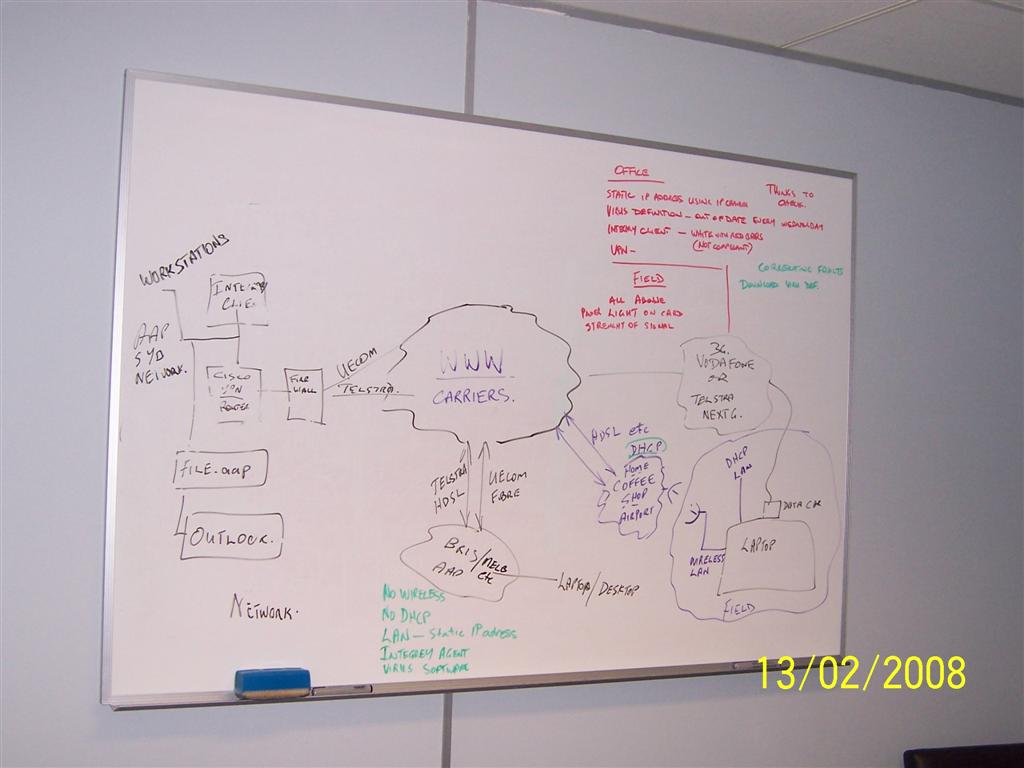 OFFICE
THINGS TO
CHECK.
STATIC IP ADDRESS USING IP
VIRUS DEFINITION - OUT OF DATE EVERY WEDNESDAY
CLIENT - WHITE WITH RED BARS
(NOT COMPLIANT)
VPN -
CORRECTING FAULTS
DOWNLOAD VIRUS DEF.
FIELD
ALL ABOVE
POWER LIGHT ON CARD
STRENGHT OF SIGNAL
WORKSTATIONS
INTEGRITY
CLIE
AAP
SYD
NETWORK.
CISCO
VPN
ROUTER
FIRE
WALL
UECOM
TELSTRA.
WWW
CARRIERS.
3G.
VODAFONE
OR
TELSTRA
NEXT G.
HDSL etc
DHCP
HOME
COFFEE
SHOP
AIRPORT
DHCP
LAN
DATA CAR
LAPTOP
WIRELESS
LAN
FIELD
FILE.aap
OUTLOCK.
TELSTRA
HDSL
UECOM
FIBRE
BRIS/MELB
AAP etc
LAPTOP/DESKTOP
NETWORK.
NO WIRELESS
NO DHCP
LAN - Static IP adress
INTEGREY AGENT
VIRUS SOFTWARE
13/02/2008